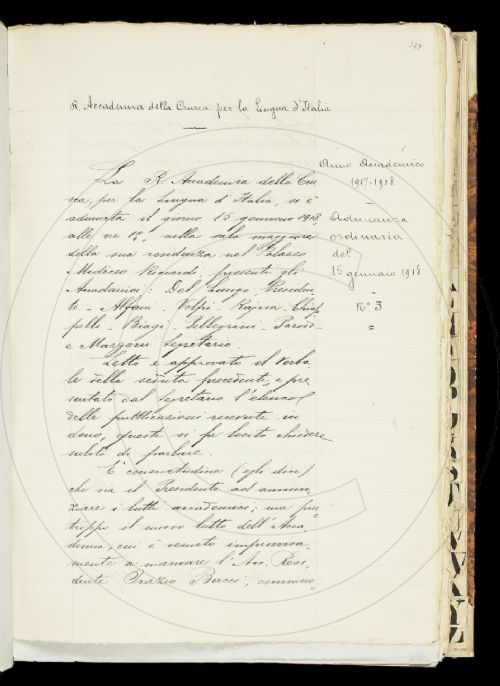 127
R. Accademia della Crusca per la Lingua d'Italia
Anno Accademico
1917-1918
Adunanza
ordinaria
del
15 gennaio 1918
N.° 3
La R. Accademia della Cru
sca, per la Lingua d'Italia, si è
adunata il giorno 15 gennaio 1918,
alle ore 15, nella sala maggiore
della sua residenza nel Palazzo
Mediceo Riccardi; presenti gli
Accademici: Del Lungo Presiden
te - Alfani - Volpi - Rajna - Chiap
pelli - Biagi - Pellegrini - Parodi -
e Mazzoni Segretario.
Letto e approvato il Verba
le della seduta precedente, e pre
sentato dal Segretario l'elenco
delle pubblicazioni ricevute in
dono, questi si fa lecito chiedere
subito di parlare.
È consuetudine (egli dice)
che sia il Presidente ad annun
ziare i lutti accademici; ma pur
troppo il nuovo lutto dell'Acca
demia, cui è venuto improvvisa
mente a mancare l'Acc. Resi
dente Orazio Bacci,